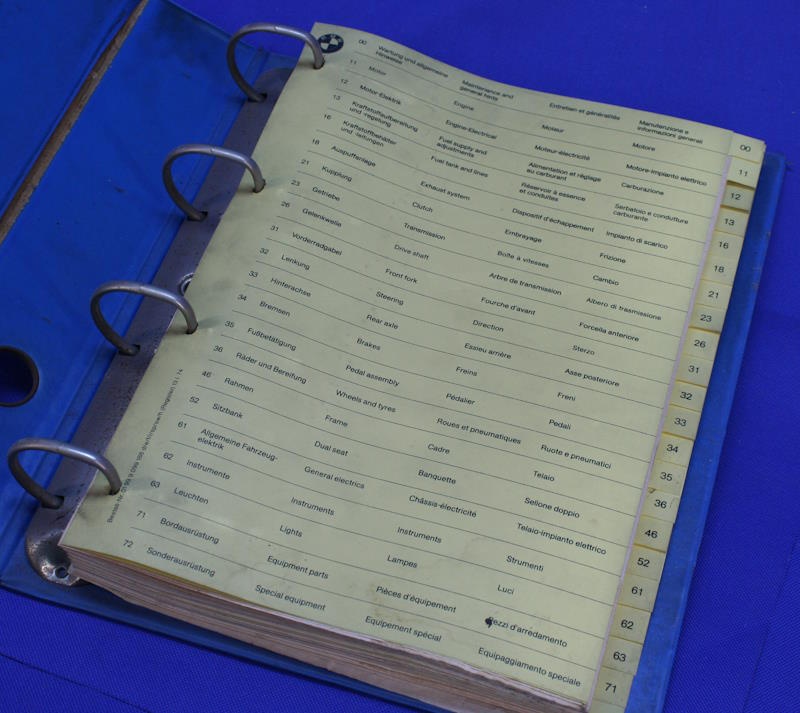 00 Wartung und allgemeine Maintenance and Entretien et généralités Manutenzione e
Hinweise general hints informazioni generali
11 Motor Engine Moteur Motore
12 Motor-Elektrik Engine-Electrical Moteur-électricité Motore-impianto elettrico
13 Kraftstoffaufbereitung Fuel supply and Alimentation et réglage Carburazione
und -regelung adjustments au carburant
16 Kraftstoffbehälter Fuel tank and lines Réservoir à essence Serbatoio e condutture
und -leitungen et conduites carburante
18 Auspuffanlage Exhaust system Dispositif d'échappement Impianto di scarico
21 Kupplung Clutch Embrayage Frizione
23 Getriebe Transmission Boîte à vitesses Cambio
26 Gelenkwelle Drive shaft Arbre de transmission Albero di trasmissione
31 Vorderradgabel Front fork Fourche d'avant Forcella anteriore
32 Lenkung Steering Direction Sterzo
33 Hinterachse Rear axle Essieu arrière Asse posteriore
34 Bremsen Brakes Freins Freni
35 Fußbetätigung Pedal assembly Pédalier Pedali
36 Räder und Bereifung Wheels and tyres Roues et pneumatiques Ruote e pneumatici
46 Rahmen Frame Cadre Telaio
52 Sitzbank Dual seat Banquette Sellone doppio
61 Allgemeine Fahrzeug- General electrics Châssis-électricité Telaio-impianto elettrico
elektrik
62 Instrumente Instruments Instruments Strumenti
63 Leuchten Lights Lampes Luci
71 Bordausrüstung Equipment parts Pièces d'équipement Pezzi d'arredamento
72 Sonderausrüstung Special equipment Equipement spécial Equipaggiamento speciale
Bestell-Nr. (Register)
00
11
12
13
16
18
21
23
26
31
32
33
34
35
36
46
52
61
62
63
71